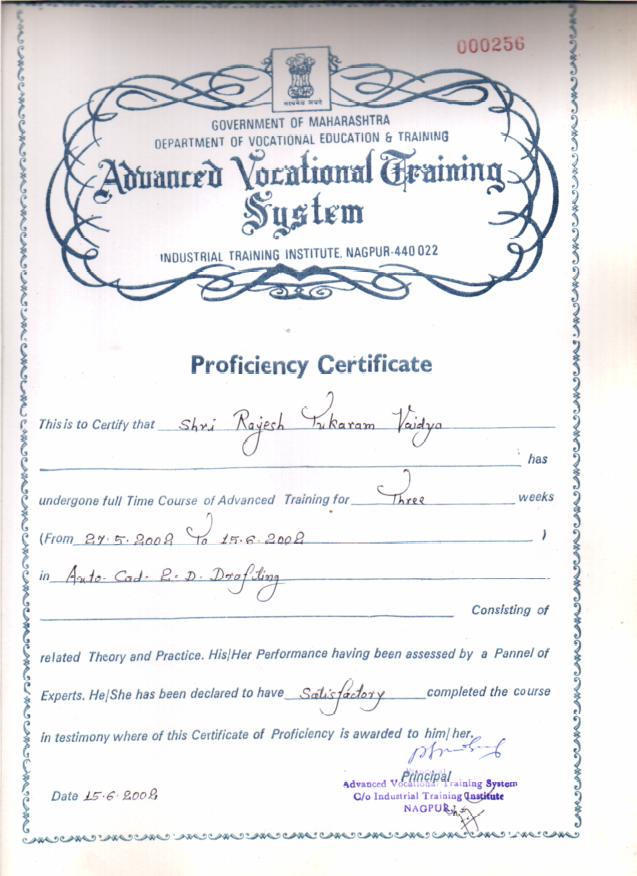 000256
सत्यमेव जयते
GOVERNMENT OF MAHARASHTRA
DEPARTMENT OF VOCATIONAL EDUCATION & TRAINING
Advanced Vocational Training
System
INDUSTRIAL TRAINING INSTITUTE, NAGPUR-440 022
Proficiency Certificate
This is to Certify that Shri Rajesh Tukaram Vaidya
has
undergone full Time Course of Advanced Training for Three weeks
(From 27.5.2002 To 15.6.2002 )
in Auto-Cad-2.D. Drafting
Consisting of
related Theory and Practice. His/Her Performance having been assessed by a Pannel of
Experts. He/She has been declared to have Satisfactory completed the course
in testimony where of this Certificate of Proficiency is awarded to him/her.
Principal
Advanced Vocational Training System
C/o Industrial Training Institute
NAGPUR
Date 15.6.2002